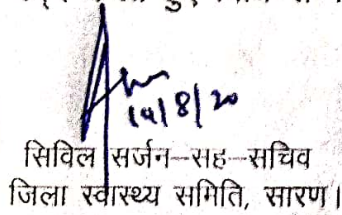 19/8/20
सिविल सर्जन-सह-सचिव
जिला स्वास्थ्य समिति, सारण।